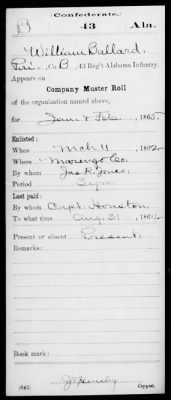 Confederate.
B 43 Ala.
William Ballard,
Pri., Co. B, 43 Reg't Alabama Infantry.
Appears on
Company Muster Roll
of the organization named above,
for Jan & Feb, 1865.
Enlisted:
When Mch 11, 1862
Where Marengo Co.
By whom Jas. R. Jones,
Period 3 yrs.
Last paid:
By whom Capt. Houston,
To what time Aug. 31, 1864
Present or absent Present.
Remarks:
Book mark:
(642) Copyist.